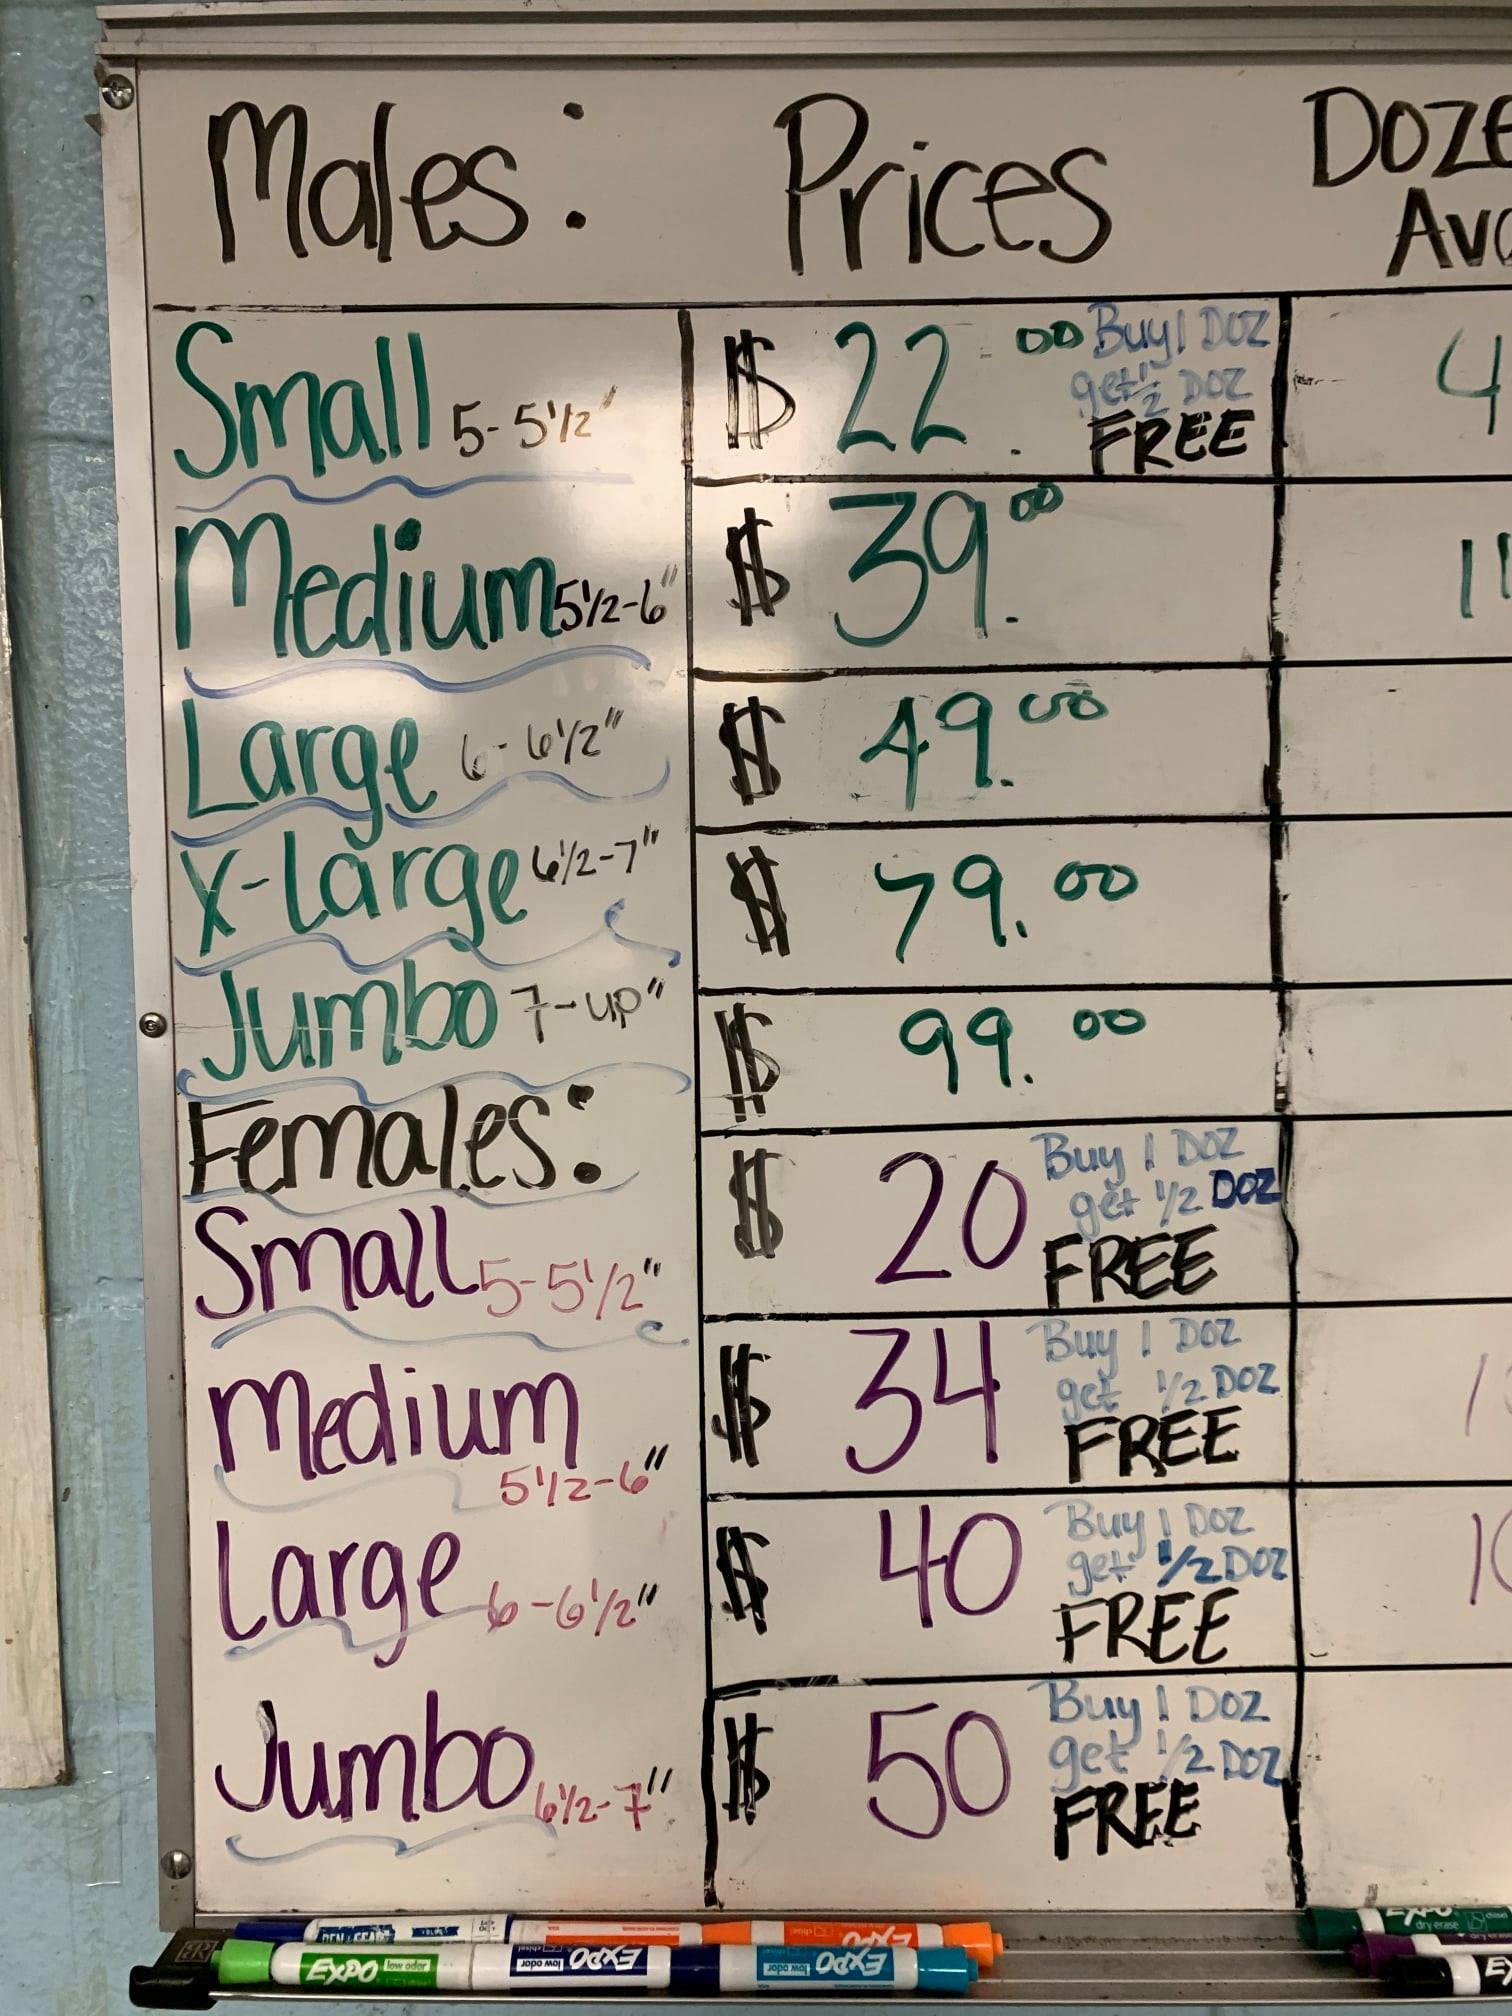 Males: Prices
Small 5-5 1/2" $ 22.00 Buy 1 DOZ
get 1/2 DOZ
FREE
Medium 5 1/2-6" $ 39.00
Large 6-6 1/2" $ 49.00
X-large 6 1/2-7" $ 79.00
Jumbo 7-up" $ 99.00
Females:
Small 5-5 1/2" $ 20 Buy 1 DOZ
get 1/2 DOZ
FREE
Medium
5 1/2-6" $ 34 Buy 1 DOZ
get 1/2 DOZ
FREE
Large 6-6 1/2" $ 40 Buy 1 DOZ
get 1/2 DOZ
FREE
Jumbo 6 1/2-7" $ 50 Buy 1 DOZ
get 1/2 DOZ
FREE
EXPO low odor
low odor EXPO
low odor EXPO
EXPO
EXPO
dry erase